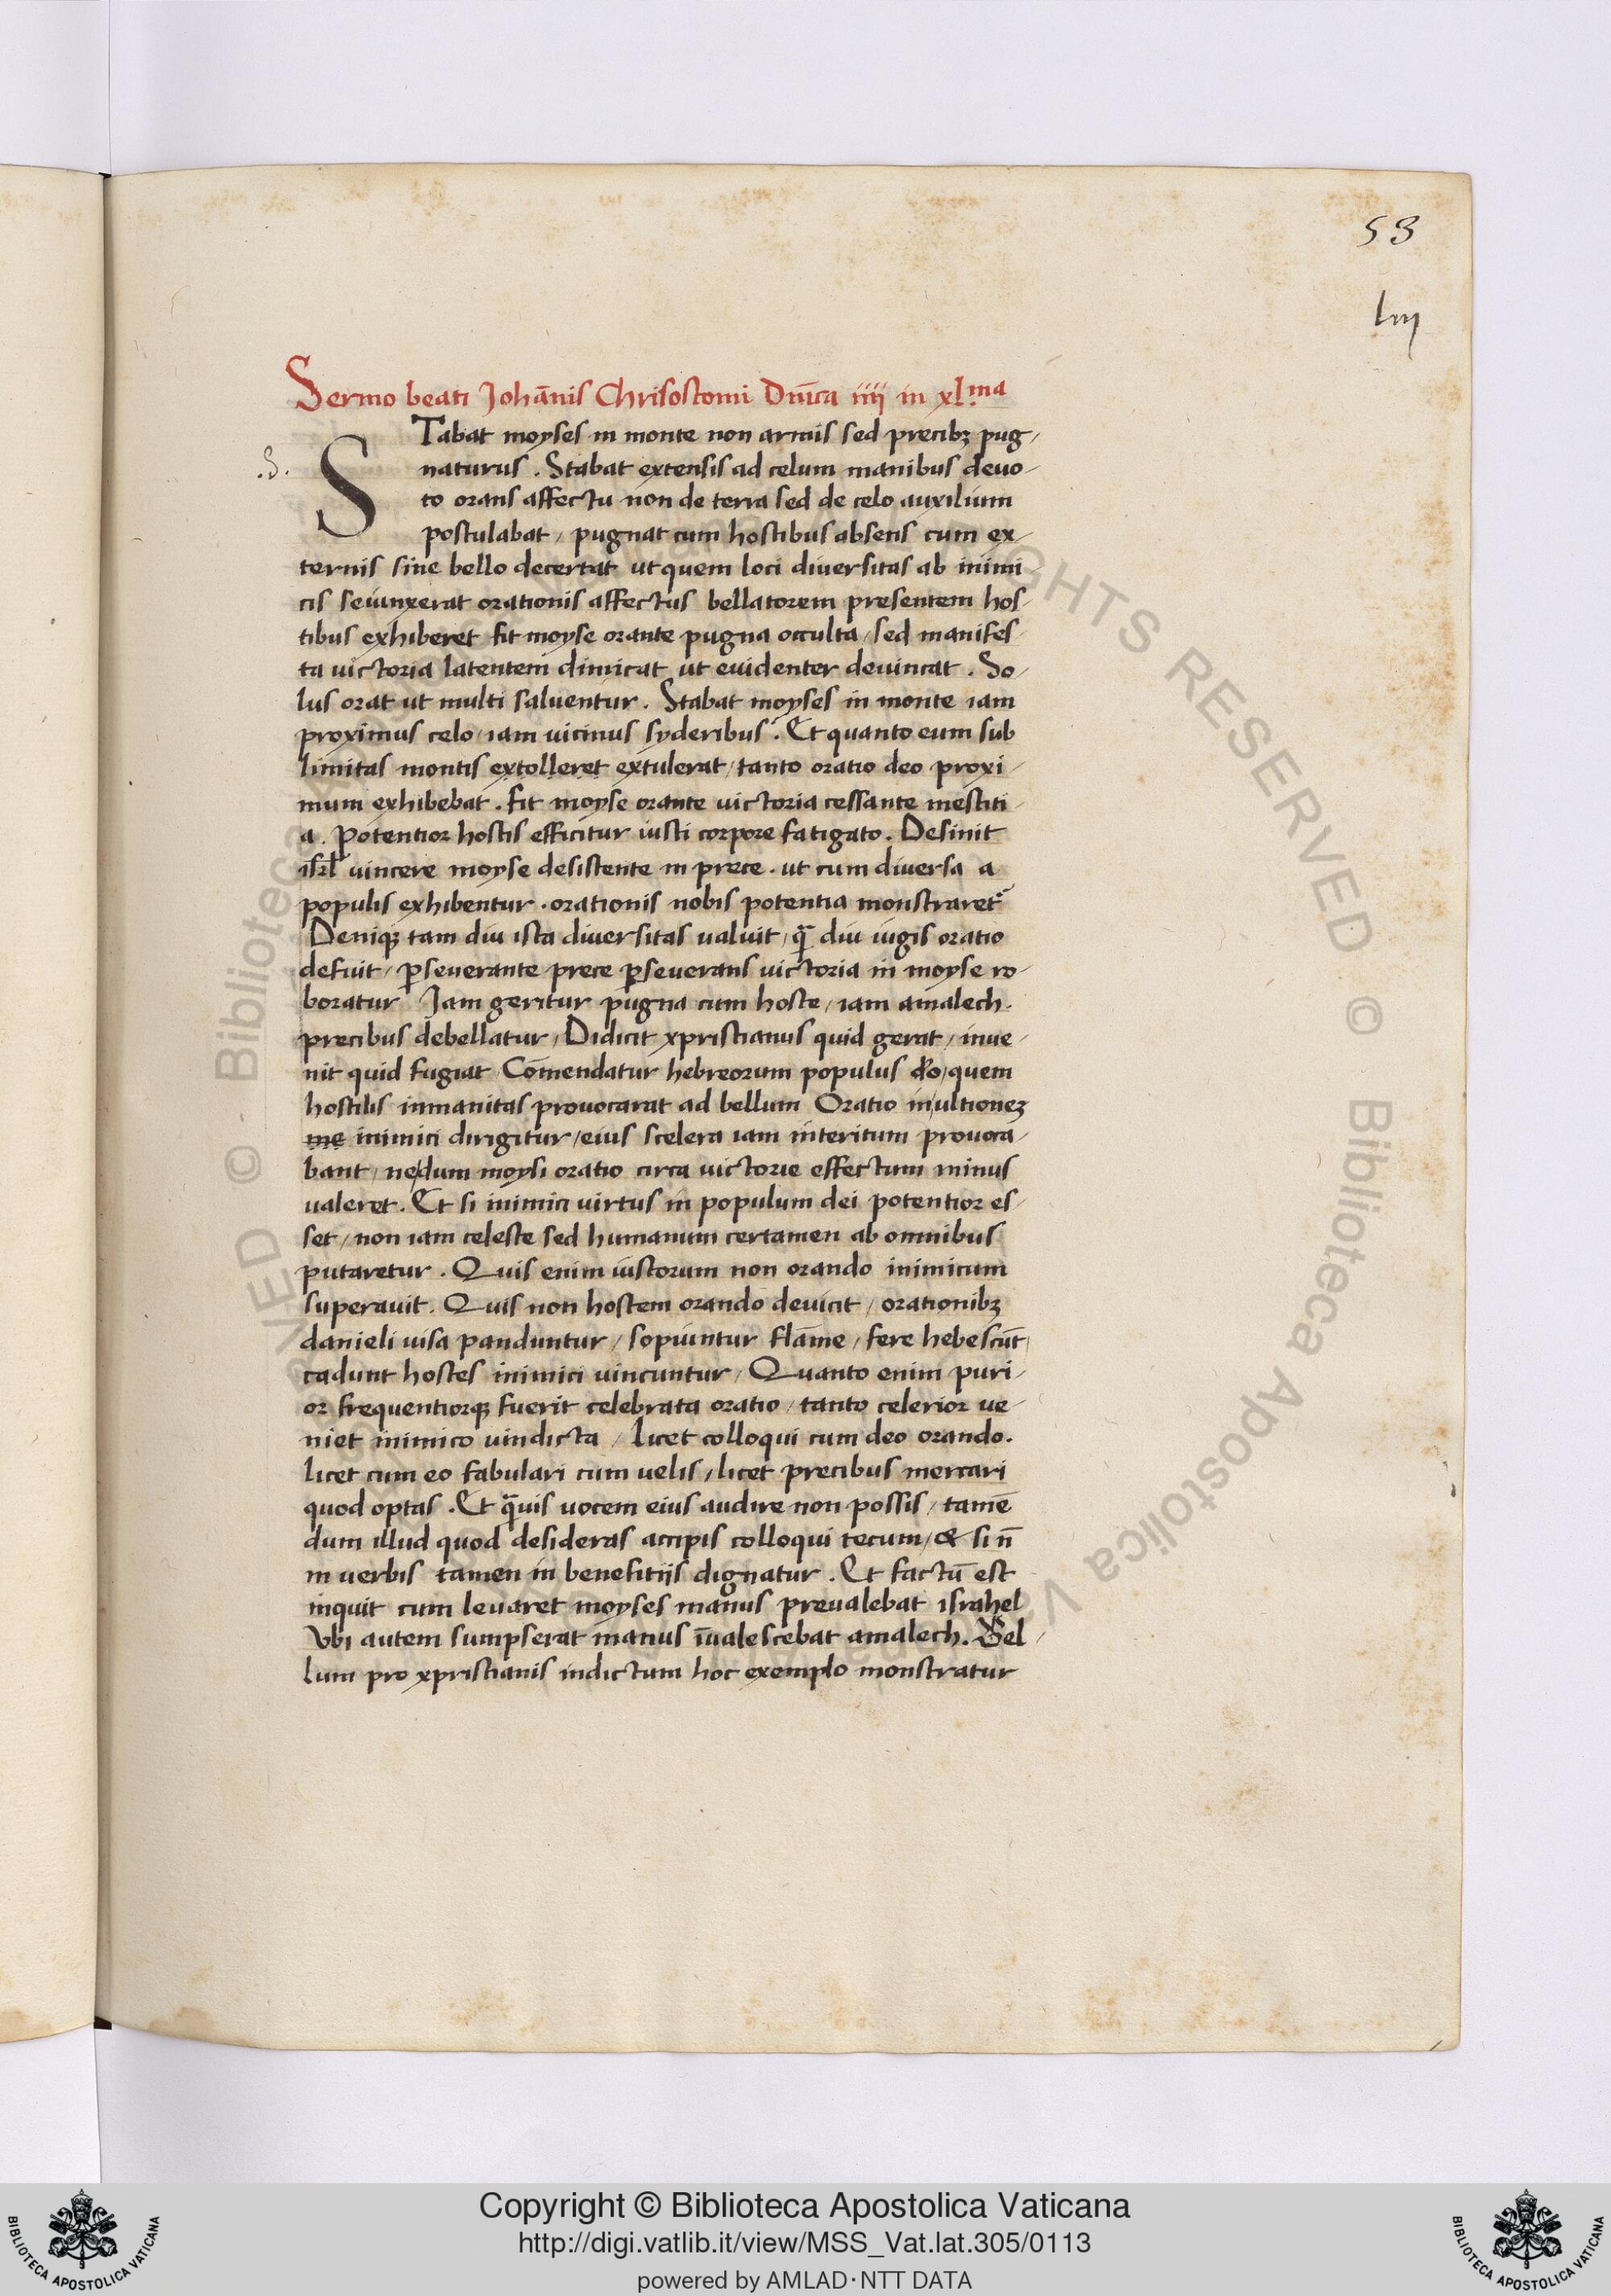 53
liii
Sermo beati Johānis Chrisostomi Dnīca iiii in xl.ma
.S.
STabat moyses in monte non armis sed precibꝫ pug/
naturus . Stabat extensis ad celum manibus deuo/
to orans affectu non de terra sed de celo auxilium
postulabat / pugnat cum hostibus absens cum ex/
ternis sine bello decertat ut quem loci diuersitas ab inimi
cis seiunxerat orationis affectus bellatorem presentem hos/
tibus exhiberet fit moyse orante pugna occulta / sed manifes/
ta uictoria latentem dimicat ut euidenter deuincat . So/
lus orat ut multi saluentur . Stabat moyses in monte iam
proximus celo / iam uicinus syderibus . Et quanto eum sub
limitas montis extolleret extulerat / tanto oratio deo proxi/
mum exhibebat . fit moyse orante uictoria cessante mestiti/
a . potentior hostis efficitur iusti corpore fatigato . Desinit
isrl̄ uincere moyse desistente in prece . ut cum diuersa a
populis exhibentur . orationis nobis potentia monstraret᷑
Deniqꝫ tam diu ista diuersitas ualuit / qꝫ̄ diu iugis oratio
defuit / ꝑseuerante prece ꝑseuerans uictoria in moyse ro/
boratur Jam geritur pugna cum hoste / iam amalech .
precibus debellatur / Didicit xpristianus quid gerat / inue/
nit quid fugiat Cōmendatur hebreorum populus deo / quem
hostilis inmanitas prouocarat ad bellum Oratio in ultioneꝫ
me inimici dirigitur / eius scelera iam interitum prouoca/
bant / ne dum moysi oratio circa uictorie effectum minus
ualeret . Et si inimici uirtus in populum dei potentior es/
set / non iam celeste sed humanum certamen ab omnibus
putaretur . Quis enim iustorum non orando inimicum
superauit . Quis non hostem orando deuicit / orationibꝫ
danieli uisa panduntur / sopiuntur flāme / fere hebescūt
cadunt hostes inimici uincuntur / Quanto enim puri/
or frequentiorqꝫ fuerit celebrata oratio / tanto celerior ue/
niet inimico uindicta / licet colloqui cum deo orando .
licet cum eo fabulari cum uelis / licet precibus mercari
quod optas . Et qꝫ̄uis uocem eius audire non possis / tamē
dum illud quod desideras accipis colloqui tecum / & si n̄
in uerbis tamen in benefitijs dignatur . Et factū est
inquit cum leuaret moyses manus preualebat israhel
Vbi autem sumpserat manus īualescebat amalech . Bel/
lum pro xpristianis indictum hoc exemplo monstratur
Copyright © Biblioteca Apostolica Vaticana
http://digi.vatlib.it/view/MSS_Vat.lat.305/0113
powered by AMLAD·NTT DATA
BIBLIOTECA APOSTOLICA VATICANA
BIBLIOTECA APOSTOLICA VATICANA